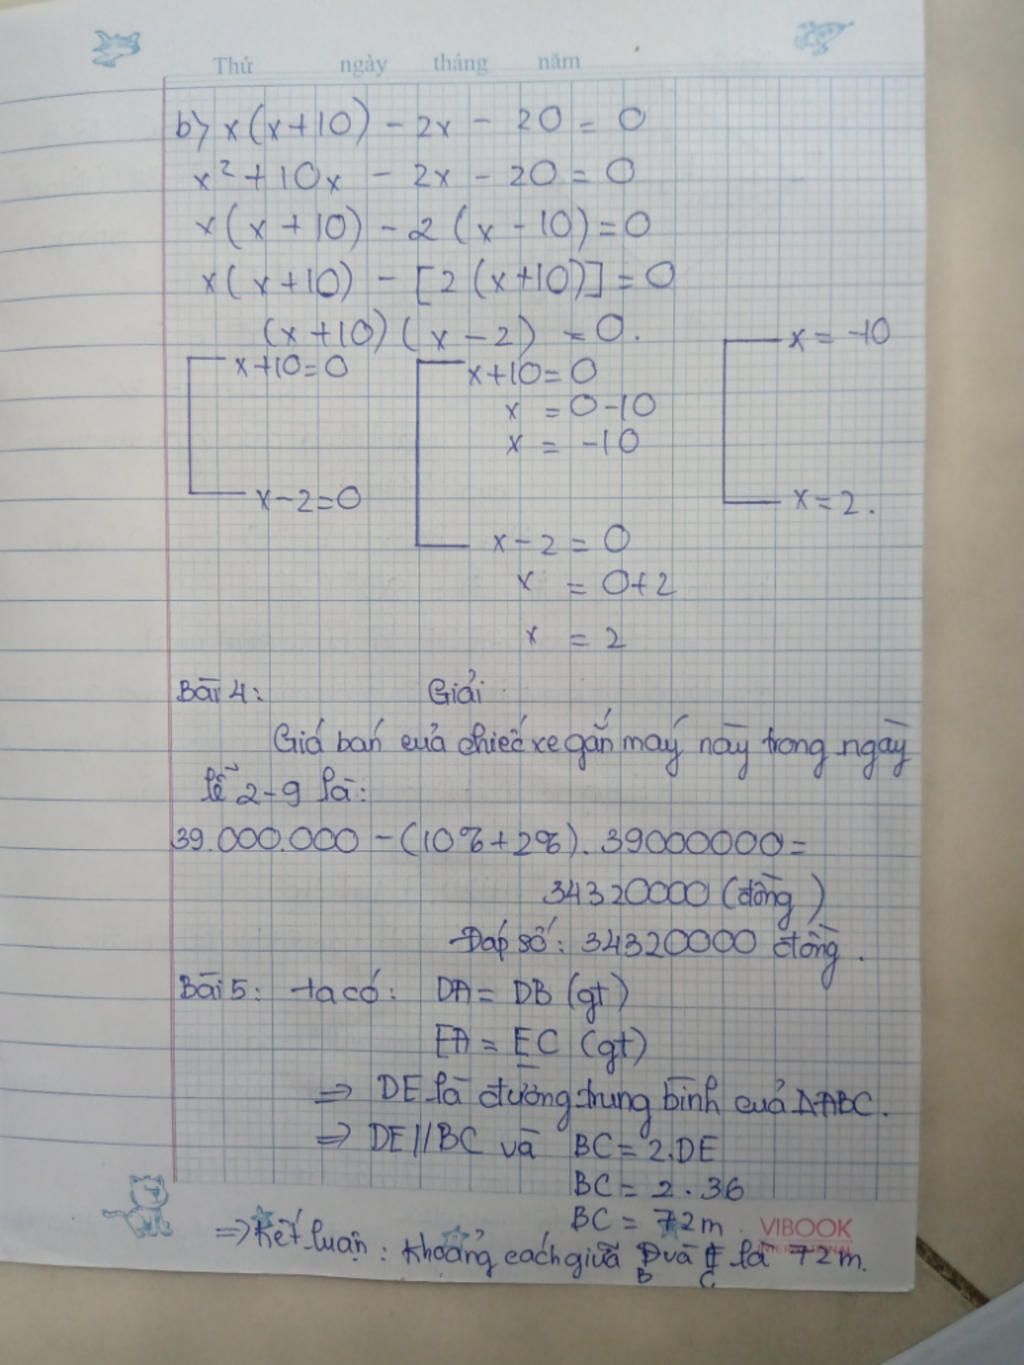 Thứ ngày tháng năm
b) x(x+10) - 2x - 20 = 0
x² + 10x - 2x - 20 = 0
x(x+10) - 2(x-10) = 0
x(x+10) - [2(x+10)] = 0
(x+10)(x-2) = 0.
x+10=0
x-2=0
x+10=0
x = 0-10
x = -10
x-2 = 0
x = 0+2
x = 2
x = -10
x = 2.
Bài 4: Giải
Giá bán của chiếc xe gắn máy này trong ngày
lễ 2-9 là:
39.000.000 - (10%+2%). 39000000 =
34320000 (đồng)
Đáp số: 34320000 đồng.
Bài 5: ta có: DA = DB (gt)
EA = EC (gt)
⇒ DE là đường trung bình của ΔABC.
⇒ DE//BC và BC = 2.DE
BC = 2.36
BC = 72m
⇒ Kết luận: Khoảng cách giữa B và C là 72m.
VIBOOK
INTERNATIONAL